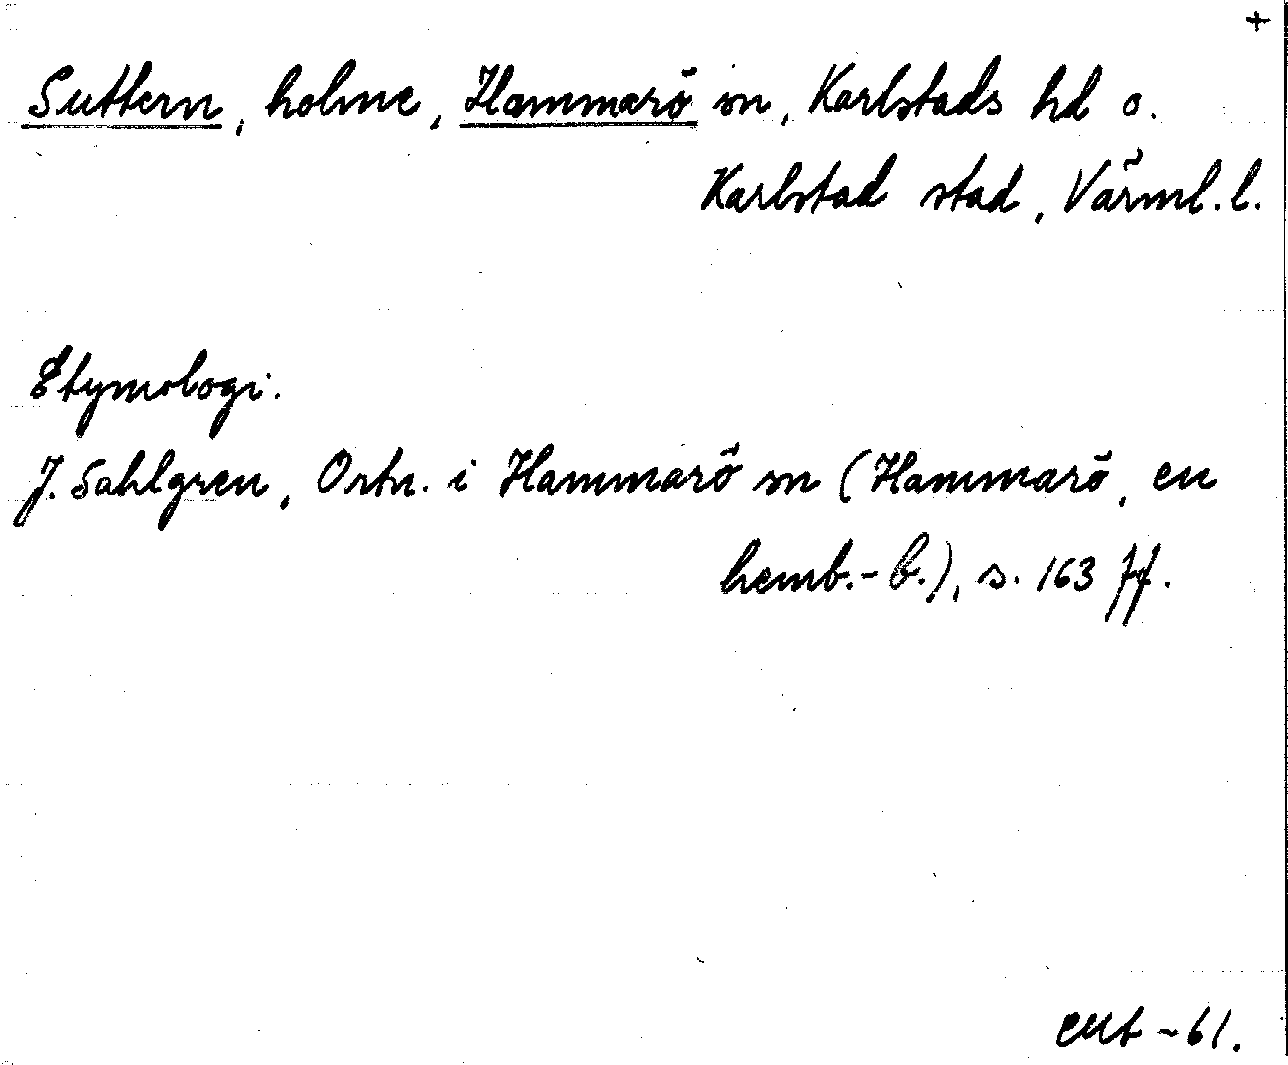 +
Suttern, holme, Hammarö sn, Karlstads hd o.
Karlstad stad, Värml. l.
Etymologi.
J. Sahlgren, Ortn. i Hammarö sn (Hammarö, en
hemb.-b.), s. 163 ff.
-61.